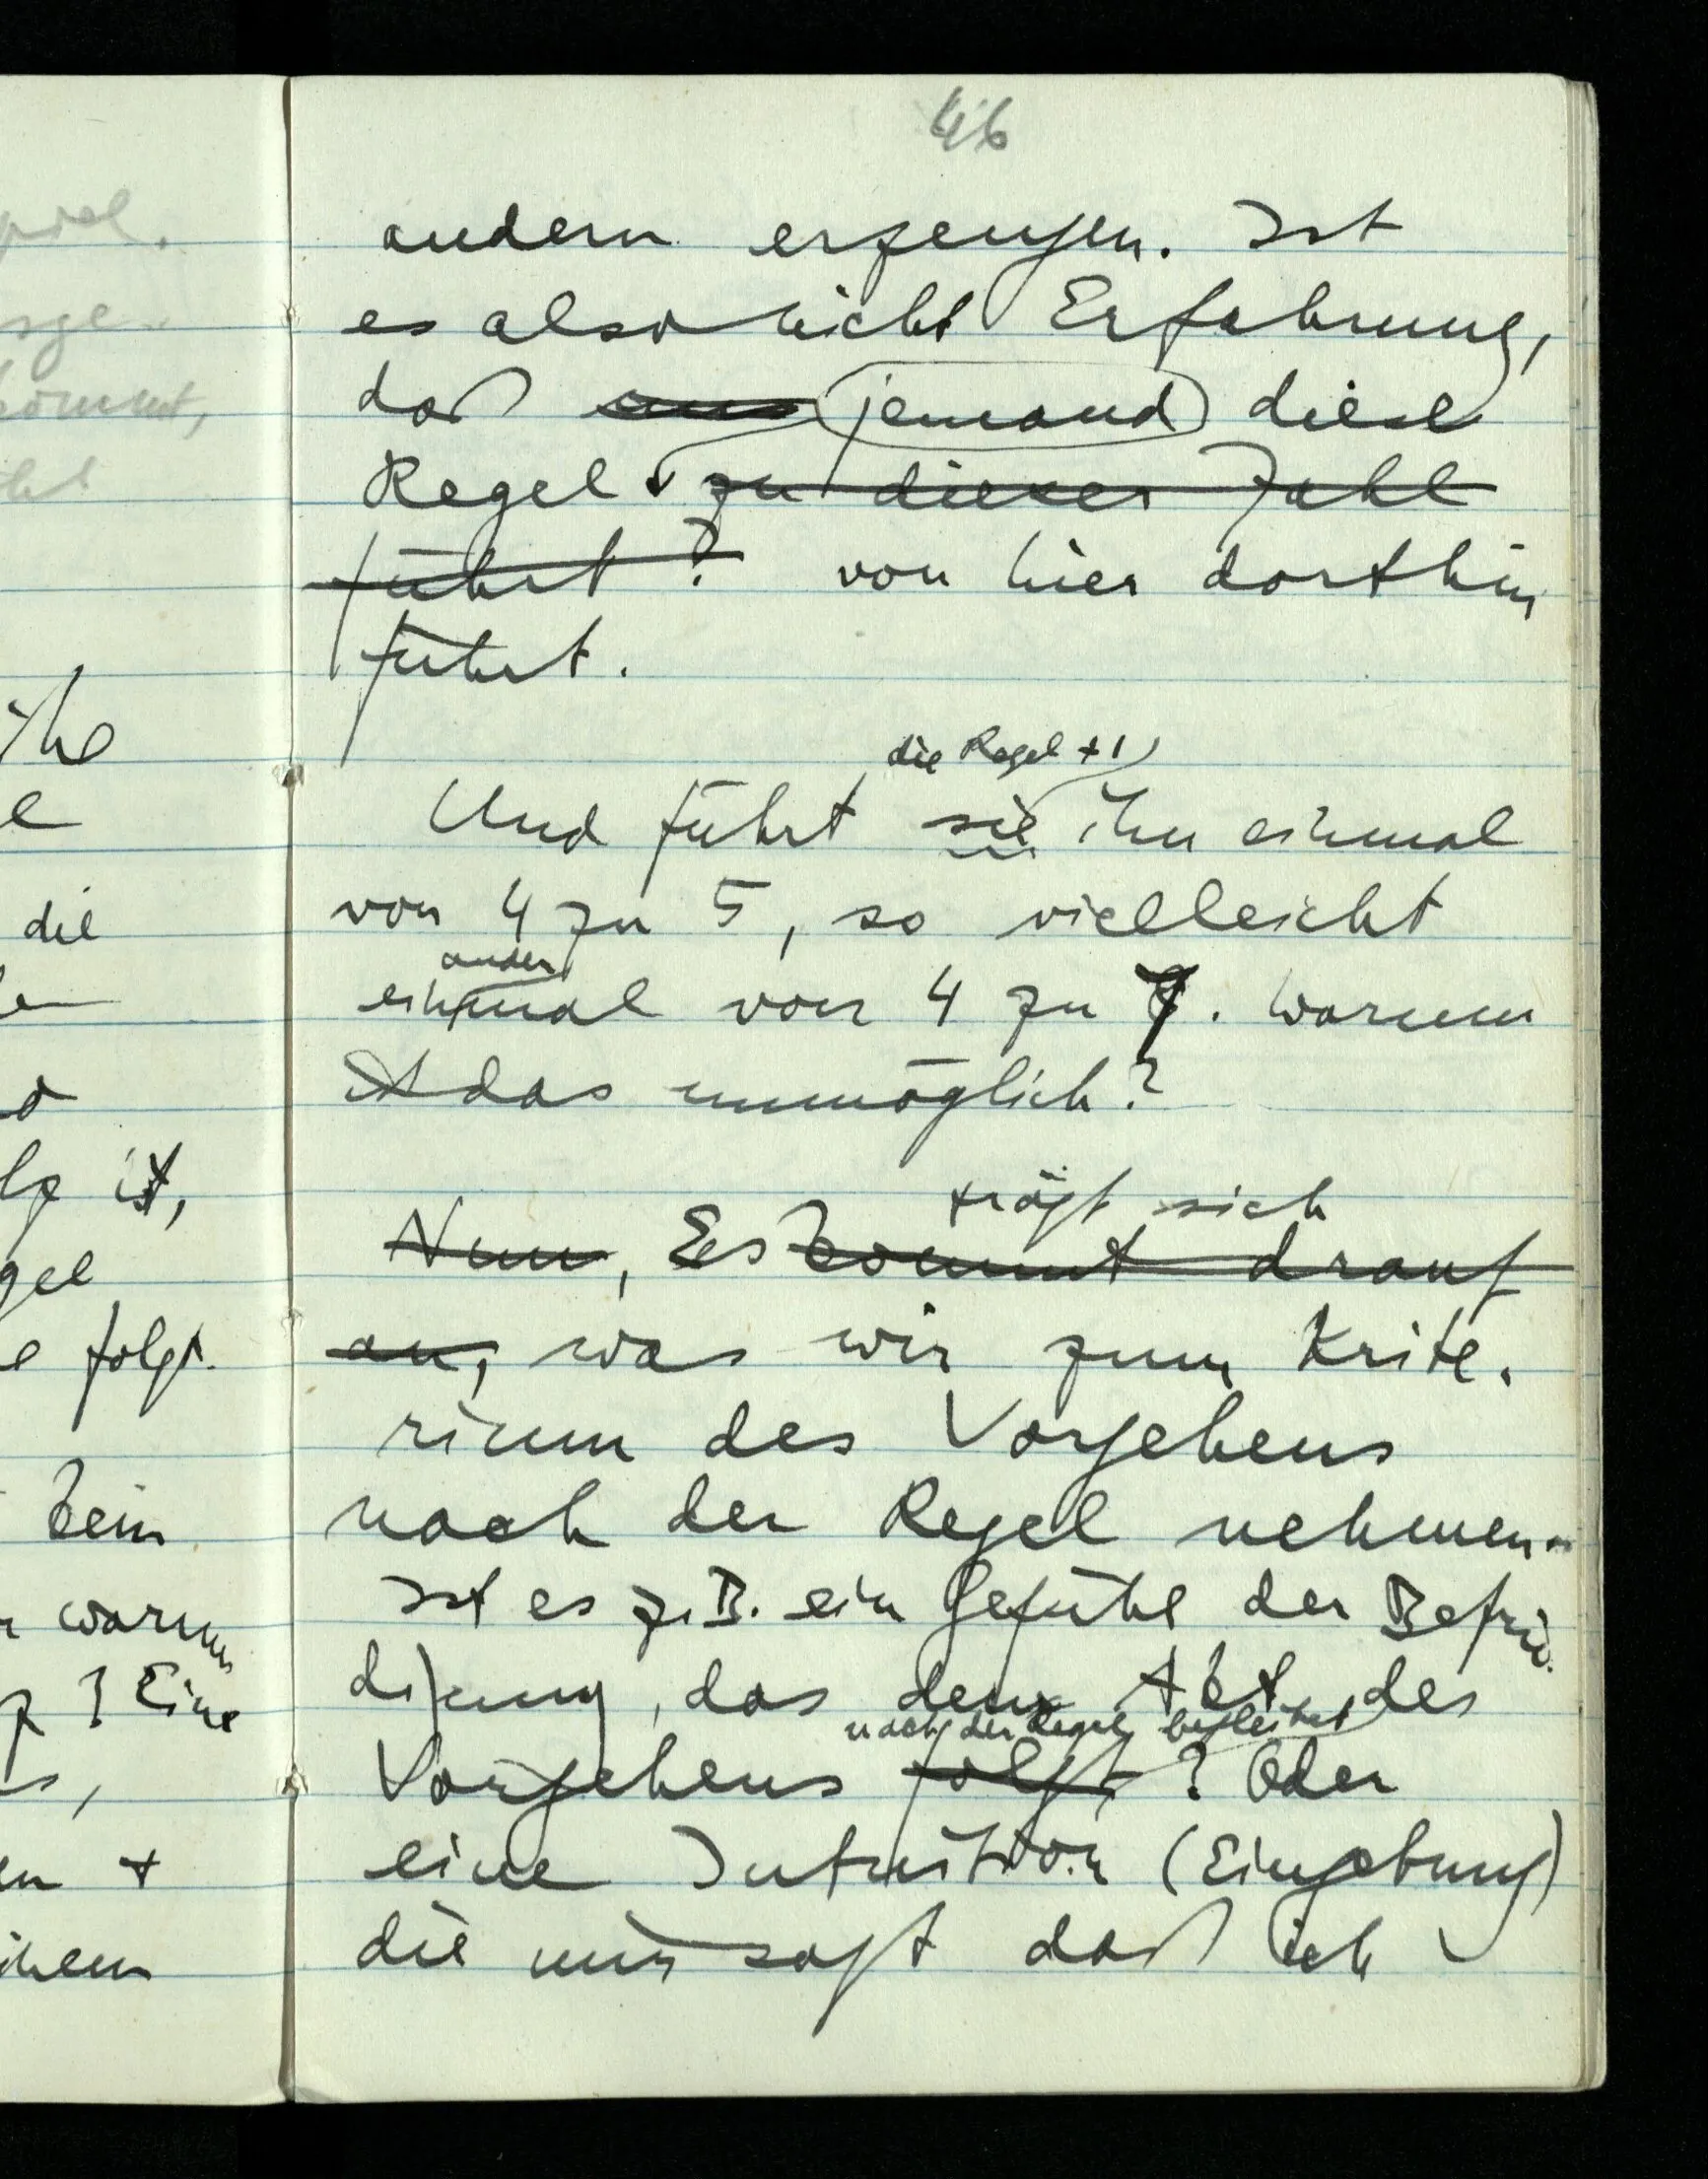 46
andern erzeugen. Ist
es also nicht Erfahrung,
daß uns jemand diese
Regel zu dieser Zahl
führt? von hier dorthin
führt.
die Regel + 1
Und führt sie ihn einmal
von 4 zu 5, so vielleicht
ander
einmal von 4 zu 7. Warum
ist das unmöglich?
frägt sich
Nun, Es kommt drauf
an, was wir zum Krite-
rium des Vorgehens
nach der Regel nehmen.
Ist es z.B. ein Gefühl der Befrie-
digung, das den Akt des
nach der Regel begleitet
Vorgehens folgt? Oder
eine Intuition (Eingebung)
die mir sagt daß ich
ist,
gel
folgt.
die
kein
warum
? Eine
+